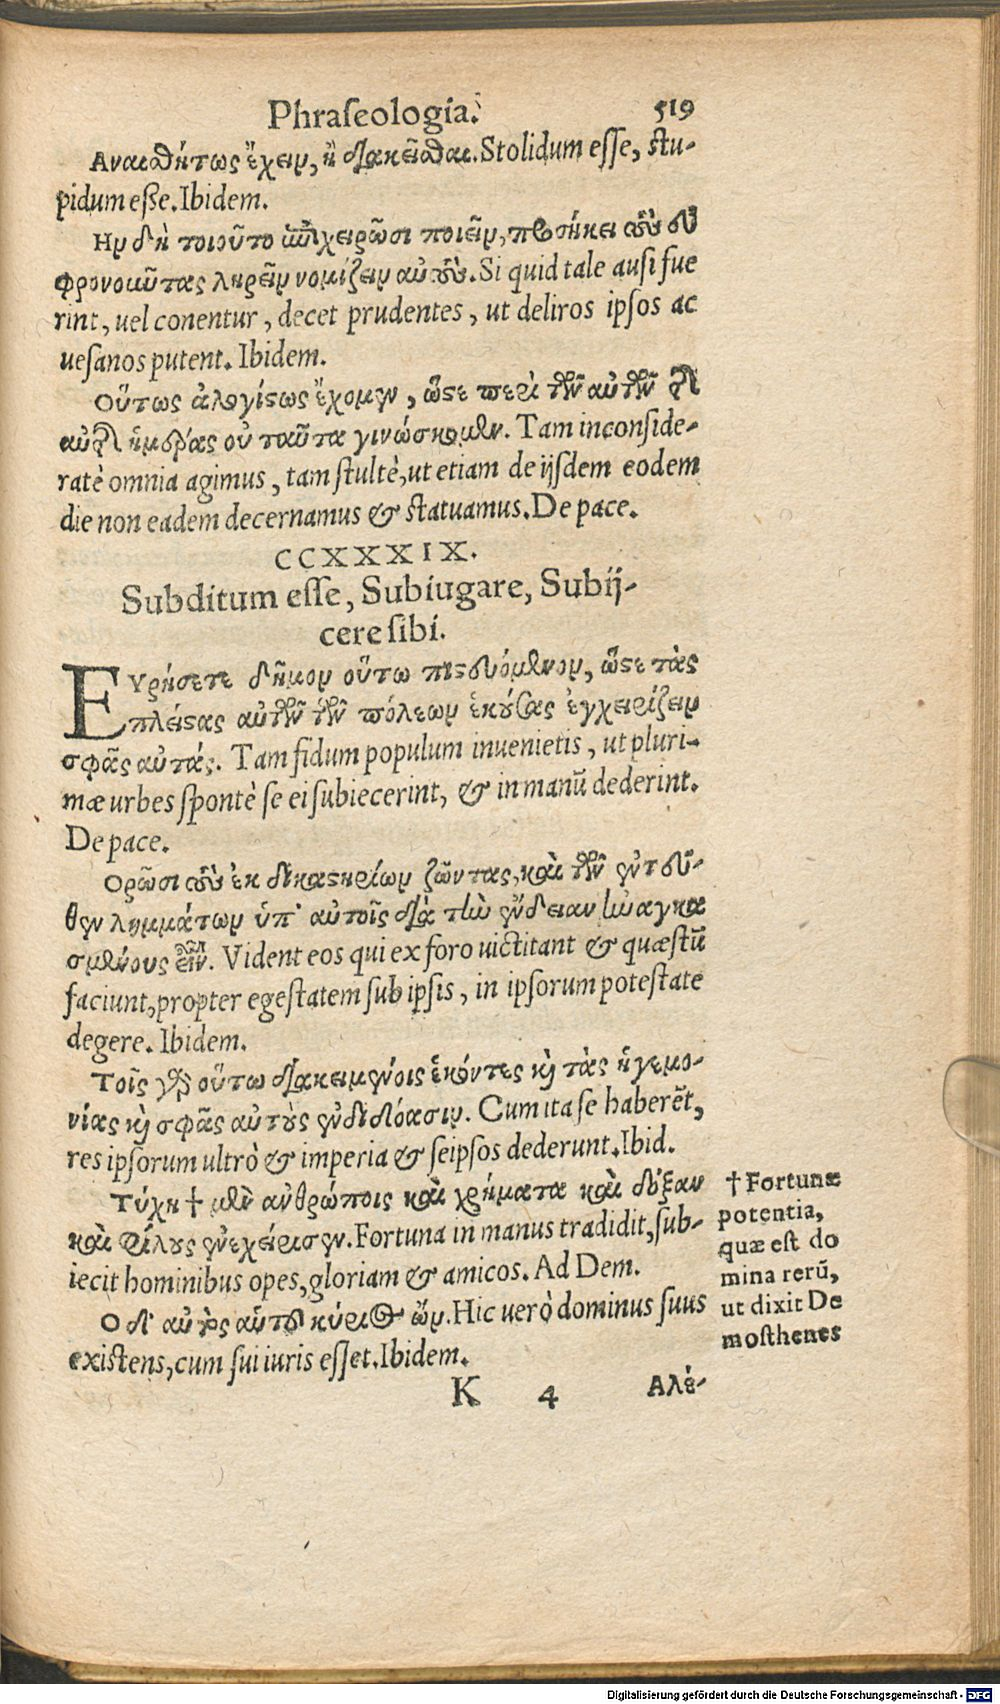 Phraſeologia. 519
Αναιϲθήτως ἔχειν, ἢ διακεῖσθαι. Stolidum eſſe, ſtu-
pidum eſſe. Ibidem.
Ην δὴ τοιοῦτο ἐπιχειρῶσι ποιεῖν, προσήκει τοὺς εὖ
φρονοῦντας ληρεῖν νομίζειν αὐτούς. Si quid tale auſi fue
rint, uel conentur, decet prudentes, ut deliros ipſos ac
ueſanos putent. Ibidem.
Οὕτως ἀλογίστως ἔχομεν, ὥστε περὶ τῶν αὐτῶν τῆς
αὐτῆς ἡμέρας οὐ ταῦτα γινώσκομεν. Tam inconſide-
ratè omnia agimus, tam ſtultè, ut etiam de ijſdem eodem
die non eadem decernamus & ſtatuamus. De pace.
CCXXXIX.
Subditum eſſe, Subiugare, Subij-
cere ſibi.
ΕΥρήσετε δῆμον οὕτω πιστευόμενον, ὥστε τὰς
πλείστας αὐτῶν τῶν πόλεων ἑκούσας ἐγχειρίζειν
σφᾶς αὐτάς. Tam fidum populum inuenietis, ut pluri-
mæ urbes ſpontè ſe ei ſubiecerint, & in manū dederint.
De pace.
Ορῶσι τοὺς ἐκ δικαστηρίων ζῶντας, καὶ τῶν ἐντεῦ-
θεν λημμάτων ὑπ' αὐτοῖς διὰ τὴν ἔνδειαν ἠναγκα
σμένους εἶναι. Vident eos qui ex foro uictitant & quæſtū
faciunt, propter egeſtatem ſub ipſis, in ipſorum poteſtate
degere. Ibidem.
Τοῖς γὰρ οὕτω διακειμένοις ἑκόντες καὶ τὰς ἡγεμο-
νίας καὶ σφᾶς αὐτοὺς ἐνδιδόασιν. Cum ita ſe haberēt,
res ipſorum ultrò & imperia & ſeipſos dederunt. Ibid.
Τύχη † μὲν ἀνθρώποις καὶ χρήματα καὶ δόξαν
καὶ φίλους ἐνεχείρισεν. Fortuna in manus tradidit, ſub-
iecit hominibus opes, gloriam & amicos. Ad Dem.
Ο δ' αὐτὸς αὑτοῦ κύριος ὤν. Hic uerò dominus ſuus
exiſtens, cum ſui iuris eſſet. Ibidem.
† Fortunæ
potentia,
quæ eſt do
mina rerū,
ut dixit De
moſthenes
K 4 Αλέ-
Digitalisierung gefördert durch die Deutsche Forschungsgemeinschaft - DFG